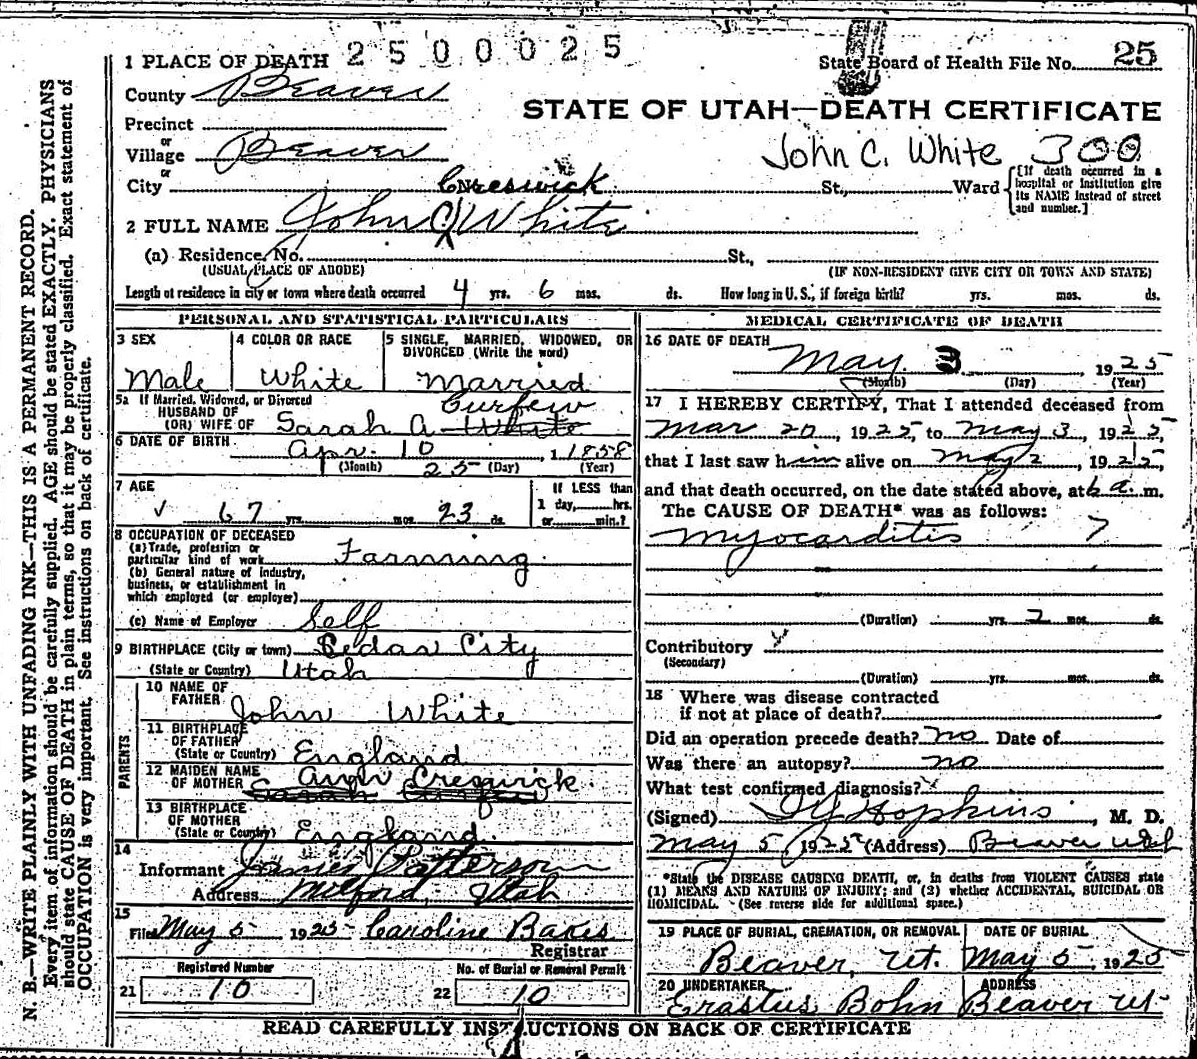 2500025
1 PLACE OF DEATH
State Board of Health File No. 25
County Beaver
STATE OF UTAH—DEATH CERTIFICATE
Precinct
or
Village Beaver
John C. White 300
or
City
St., Ward
[If death occurred in a
hospital or institution give
its NAME instead of street
and number.]
Creswick
2 FULL NAME John C White
(a) Residence, No. St.,
(USUAL PLACE OF ABODE) (IF NON-RESIDENT GIVE CITY OR TOWN AND STATE)
Length of residence in city or town where death occurred 4 yrs. 6 mos. ds. How long in U. S., if foreign birth? yrs. mos. ds.
PERSONAL AND STATISTICAL PARTICULARS
3 SEX
Male
4 COLOR OR RACE
White
5 SINGLE, MARRIED, WIDOWED, OR
DIVORCED (Write the word)
Married
5a If Married, Widowed, or Divorced
HUSBAND OF
(OR) WIFE OF Sarah A White
Curfew
6 DATE OF BIRTH Apr. 10 1 1858
(Month) 25 (Day) (Year)
7 AGE
67 yrs. mos. 23 ds.
If LESS than
1 day, hrs.
or min.?
8 OCCUPATION OF DECEASED
(a) Trade, profession or
particular kind of work Farming
(b) General nature of industry,
business, or establishment in
which employed (or employer)
(c) Name of Employer Self
9 BIRTHPLACE (City or town) Cedar City
(State or Country) Utah
PARENTS
10 NAME OF
FATHER John White
11 BIRTHPLACE
OF FATHER
(State or Country) England
12 MAIDEN NAME
OF MOTHER Ann Creswick
13 BIRTHPLACE
OF MOTHER
(State or Country) England.
14
Informant James Patterson
Address Milford, Utah
15
Filed May 5 1925 Caroline Bakes
Registrar
Registered Number
21 10
No. of Burial or Removal Permit
22 10
MEDICAL CERTIFICATE OF DEATH
16 DATE OF DEATH
May 3 1925
(Month) (Day) (Year)
17 I HEREBY CERTIFY, That I attended deceased from
Mar 20, 1925, to May 3, 1925,
that I last saw him alive on May 2, 1925,
and that death occurred, on the date stated above, at 6 a. m.
The CAUSE OF DEATH* was as follows:
Myocarditis 7
(Duration) yrs. 2 mos. ds.
Contributory
(Secondary)
(Duration) yrs. mos. ds.
18 Where was disease contracted
if not at place of death?
Did an operation precede death? no Date of
Was there an autopsy? no
What test confirmed diagnosis?
(Signed) Hopkins, M. D.
May 5, 1925 (Address) Beaver Utah
*State the DISEASE CAUSING DEATH, or, in deaths from VIOLENT CAUSES state
(1) MEANS AND NATURE OF INJURY; and (2) whether ACCIDENTAL, SUICIDAL OR
HOMICIDAL. (See reverse side for additional space.)
19 PLACE OF BURIAL, CREMATION, OR REMOVAL
Beaver, Ut.
DATE OF BURIAL
May 5, 1925
20 UNDERTAKER
Erastus Bohn
ADDRESS
Beaver Ut
READ CAREFULLY INSTRUCTIONS ON BACK OF CERTIFICATE
N. B.—WRITE PLAINLY WITH UNFADING INK—THIS IS A PERMANENT RECORD.
Every item of information should be carefully supplied. AGE should be stated EXACTLY. PHYSICIANS
should state CAUSE OF DEATH in plain terms, so that it may be properly classified. Exact statement of
OCCUPATION is very important. See instructions on back of certificate.